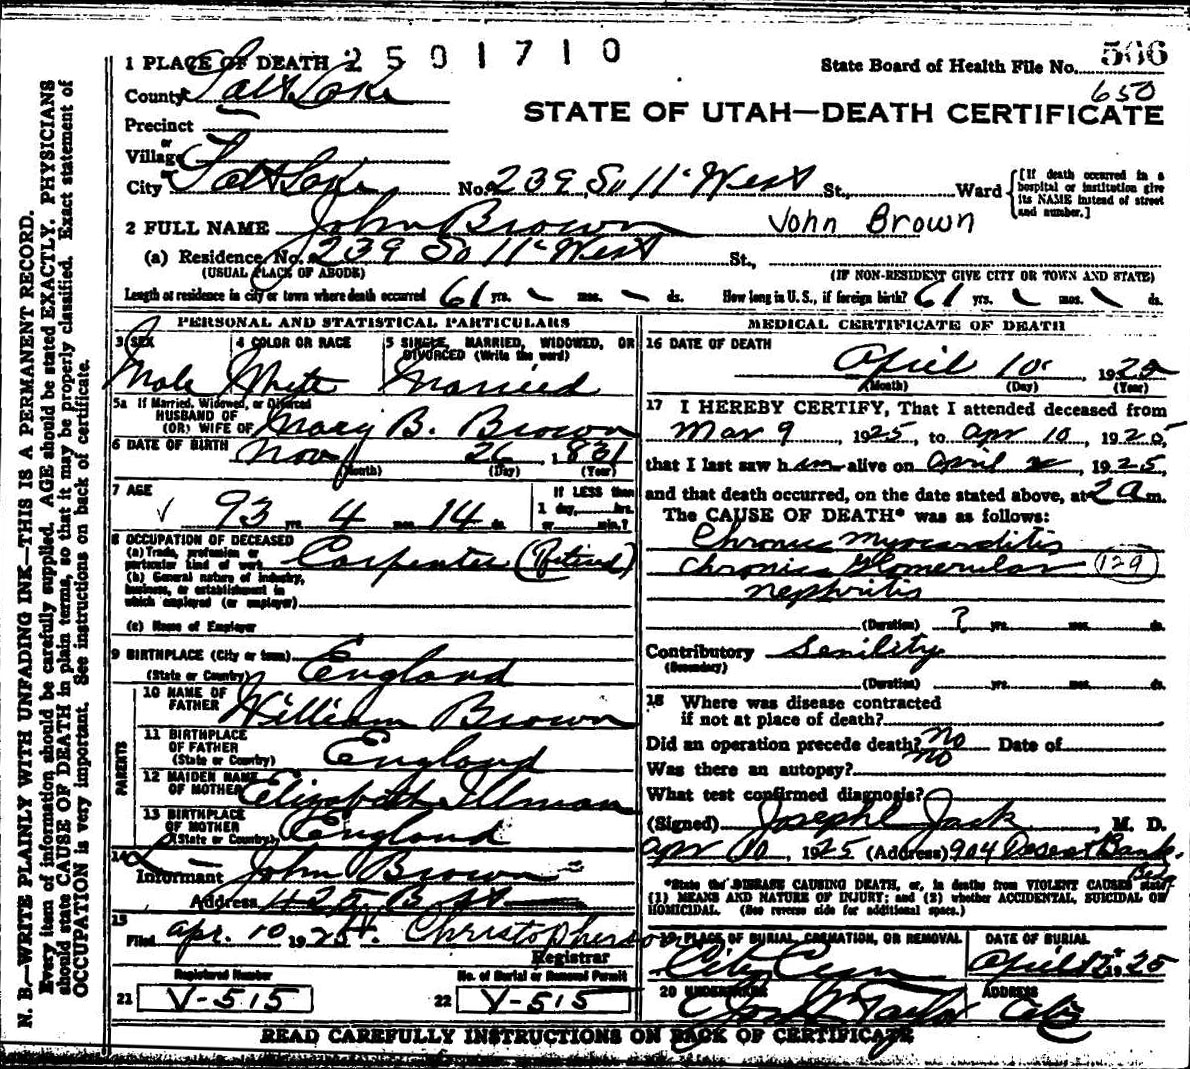 N. B.—WRITE PLAINLY WITH UNFADING INK—THIS IS A PERMANENT RECORD.
Every item of information should be carefully supplied. AGE should be stated EXACTLY. PHYSICIANS
should state CAUSE OF DEATH in plain terms, so that it may be properly classified. Exact statement of
OCCUPATION is very important. See instructions on back of certificate.
1 PLACE OF DEATH 2501710
State Board of Health File No. 566
650
County Salt Lake
STATE OF UTAH—DEATH CERTIFICATE
Precinct
or
Village
City Salt Lake No. 239 So 11" West St., Ward
[If death occurred in a
hospital or institution give
its NAME instead of street
and number.]
2 FULL NAME John Brown John Brown
(a) Residence, No. 239 So 11" West St.,
(USUAL PLACE OF ABODE) (IF NON-RESIDENT GIVE CITY OR TOWN AND STATE)
Length of residence in city or town where death occurred 61 yrs. - mos. - ds. How long in U.S., if foreign birth? 61 yrs. - mos. - ds.
PERSONAL AND STATISTICAL PARTICULARS
3 SEX 4 COLOR OR RACE 5 SINGLE, MARRIED, WIDOWED, OR
DIVORCED (Write the word)
Male White Married
5a If Married, Widowed, or Divorced
HUSBAND OF
(OR) WIFE OF Mary B. Brown
6 DATE OF BIRTH Nov 26 1831
(Month) (Day) (Year)
7 AGE
If LESS than
1 day, hrs.
or min.?
93 yrs. 4 mos. 14 ds.
8 OCCUPATION OF DECEASED
(a) Trade, profession or
particular kind of work Carpenter (Retired)
(b) General nature of industry,
business, or establishment in
which employed (or employer)
(c) Name of Employer
9 BIRTHPLACE (City or town)
(State or Country) England
PARENTS
10 NAME OF
FATHER William Brown
11 BIRTHPLACE
OF FATHER
(State or Country) England
12 MAIDEN NAME
OF MOTHER Elizabeth Illman
13 BIRTHPLACE
OF MOTHER
(State or Country) England
14
Informant John Brown
Address 425 B St
15
Filed Apr. 10 1925 H. Christopherson
Registrar
Registered Number No. of Burial or Removal Permit
21 V-515 22 V-515
MEDICAL CERTIFICATE OF DEATH
16 DATE OF DEATH
April 10, 1925
(Month) (Day) (Year)
17 I HEREBY CERTIFY, That I attended deceased from
Mar 9 1925, to Apr 10, 1925,
that I last saw him alive on April, 1925,
and that death occurred, on the date stated above, at 2 a m.
The CAUSE OF DEATH* was as follows:
Chronic Myocarditis
Chronic Glomerular 129
nephritis
(Duration) ? yrs. mos. ds.
Contributory Senility
(Secondary)
(Duration) yrs. mos. ds.
18 Where was disease contracted
if not at place of death?
Did an operation precede death? No Date of
Was there an autopsy? No
What test confirmed diagnosis?
(Signed) Joseph E Jack, M. D.
Apr 10, 1925 (Address) 904 Deseret Bank
Bldg
*State the DISEASE CAUSING DEATH, or, in deaths from VIOLENT CAUSES state
(1) MEANS AND NATURE OF INJURY; and (2) whether ACCIDENTAL, SUICIDAL OR
HOMICIDAL. (See reverse side for additional space.)
19 PLACE OF BURIAL, CREMATION, OR REMOVAL DATE OF BURIAL
City Cem April 12 1925
20 UNDERTAKER ADDRESS
Taylor City
READ CAREFULLY INSTRUCTIONS ON BACK OF CERTIFICATE